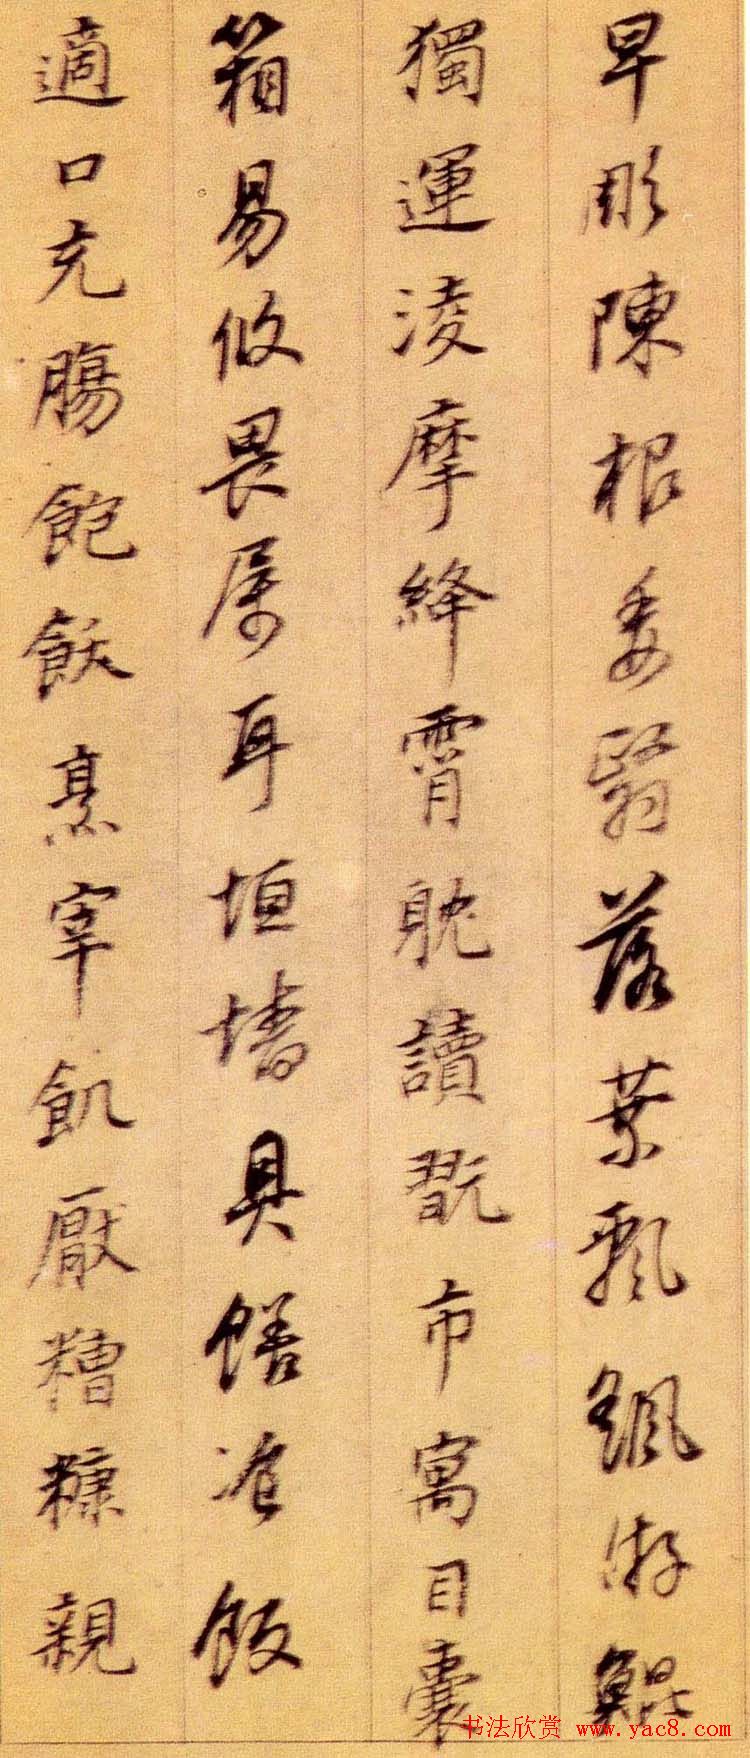 早彫陳根委翳落葉飄颻游鯤
獨運淩摩絳霄躭讀翫市寓目囊
箱易攸畏属耳垣墻具饍飡飯
適口充腸飽飫烹宰飢厭糟糠親
书法欣赏 www.yac8.com